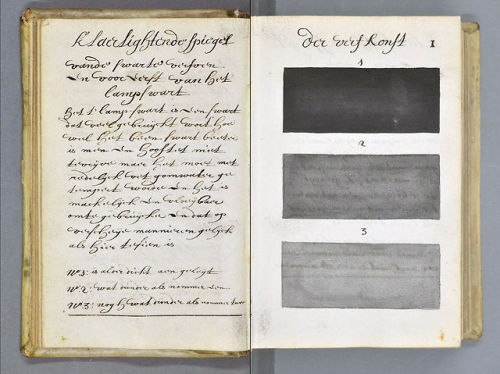 Klaer Lightende Spiegel
vande swarte verwen.
En voor Eerst van het
lampswart
het t' lamp swart is Een swart
dat veel gebruijckt wort hoe
wel het been swart beeter
is men Een
maer het moet met
redelijk vet gomwater ge
tempert worden En het is
mackelijck En
om te gebruijcke En dat op
mannieren gelijck
als hier te sien is
No 1: is alder dicht aen geleijt
No 2: wat minder als nommer Een
No 3: nogh wat minder als nommer twee
der verf konst
1
1
2
3